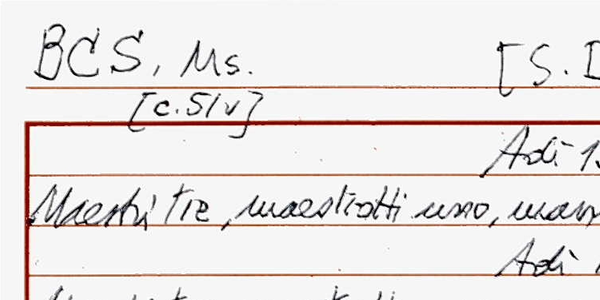 BCS, Ms. [S.
[c.51v]
Adi 1
Maestri tre, maestratti uno,
Adi